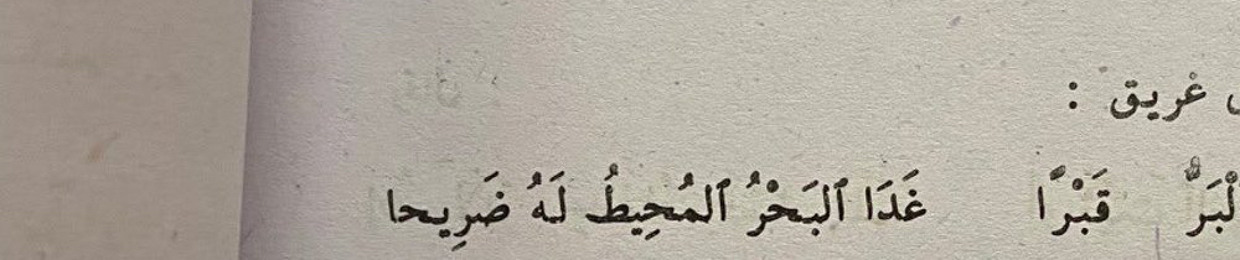 غريق :
قَبْرًا غَدَا ٱلبَحْرُ ٱلمُحِيطُ لَهُ ضَرِيحا